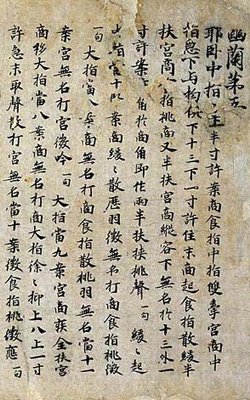 幽蘭第五
耶臥中指十上半寸許案商食指中指雙牽宮商中
指急下与拘俱下十三下一寸許住末商起食指散緩半
扶宮商食指挑商又半扶宮商縱容下無名於十三外一
寸許案商角於商角即作兩半扶挟挑聲一句緩緩起
當十案商緩緩散歷羽徵無名打商食指挑徵
一句大指當八案商無名打商食指散挑羽無名當十一
案宮無名打宮徵吟一句大指當九案宮商疾全扶宮
商移大指當八案商無名打商大指徐徐抑上八上一寸
許急末取聲散打宮無名當十案徵食指挑徵應一句